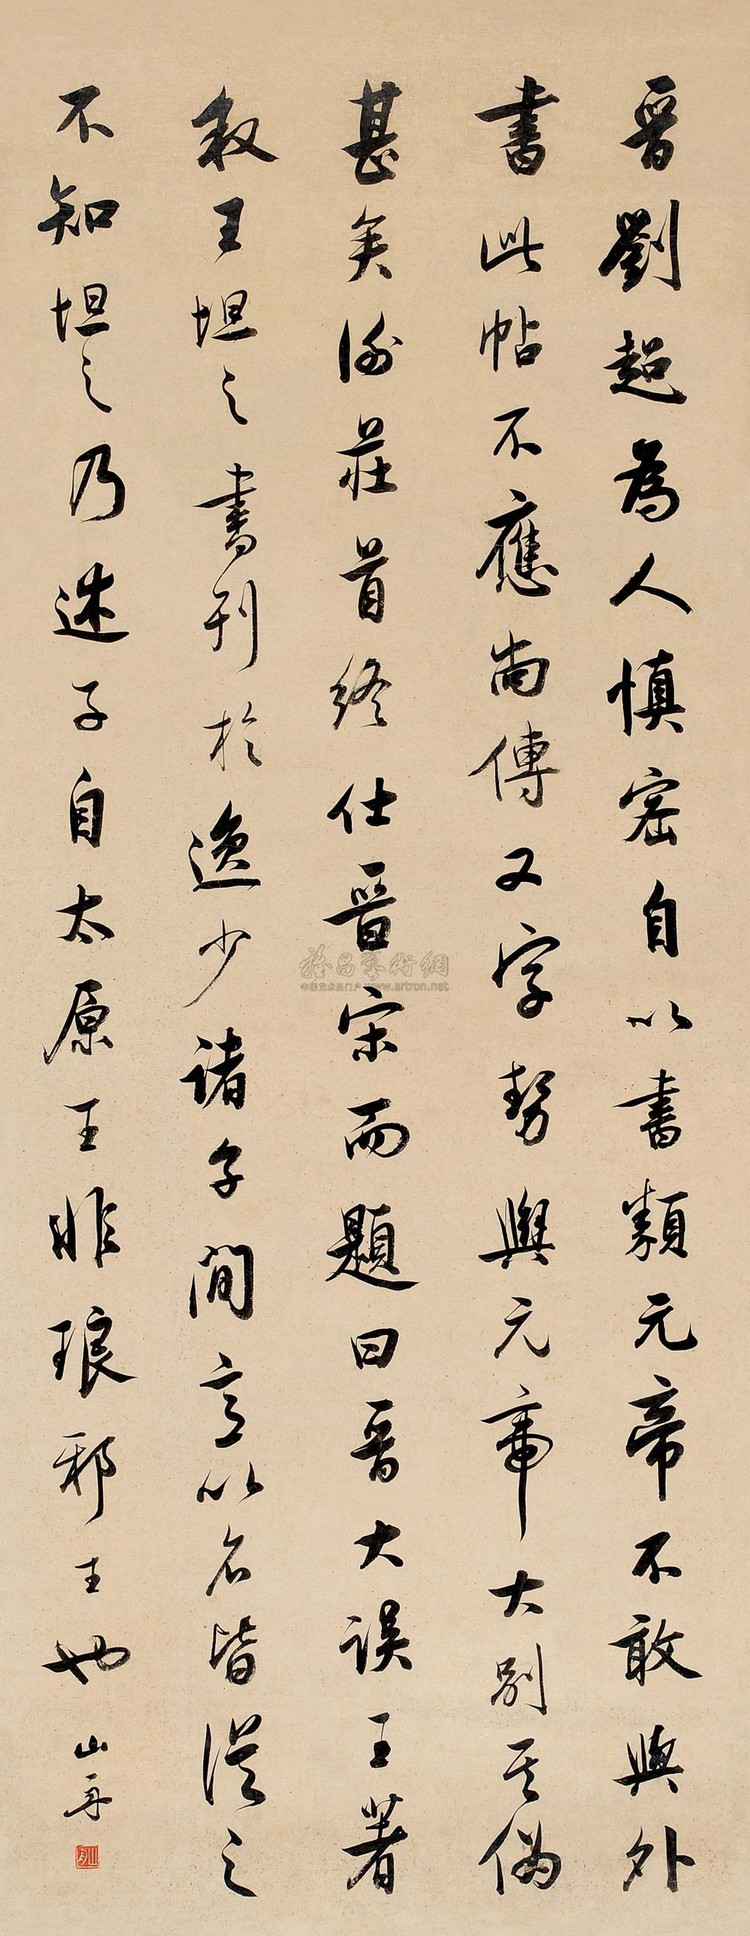 晉劉超為人慎密自以書類元帝不敢與外
書此帖不應尚傳又字勢與元帝大別其偽
甚矣謝莊首終仕晉宋而題曰晉大誤王著
敘王坦之書刊於逸少諸子間意以名皆從之
不知坦之乃述子自太原王非琅邪王也
山舟
www.artron.net